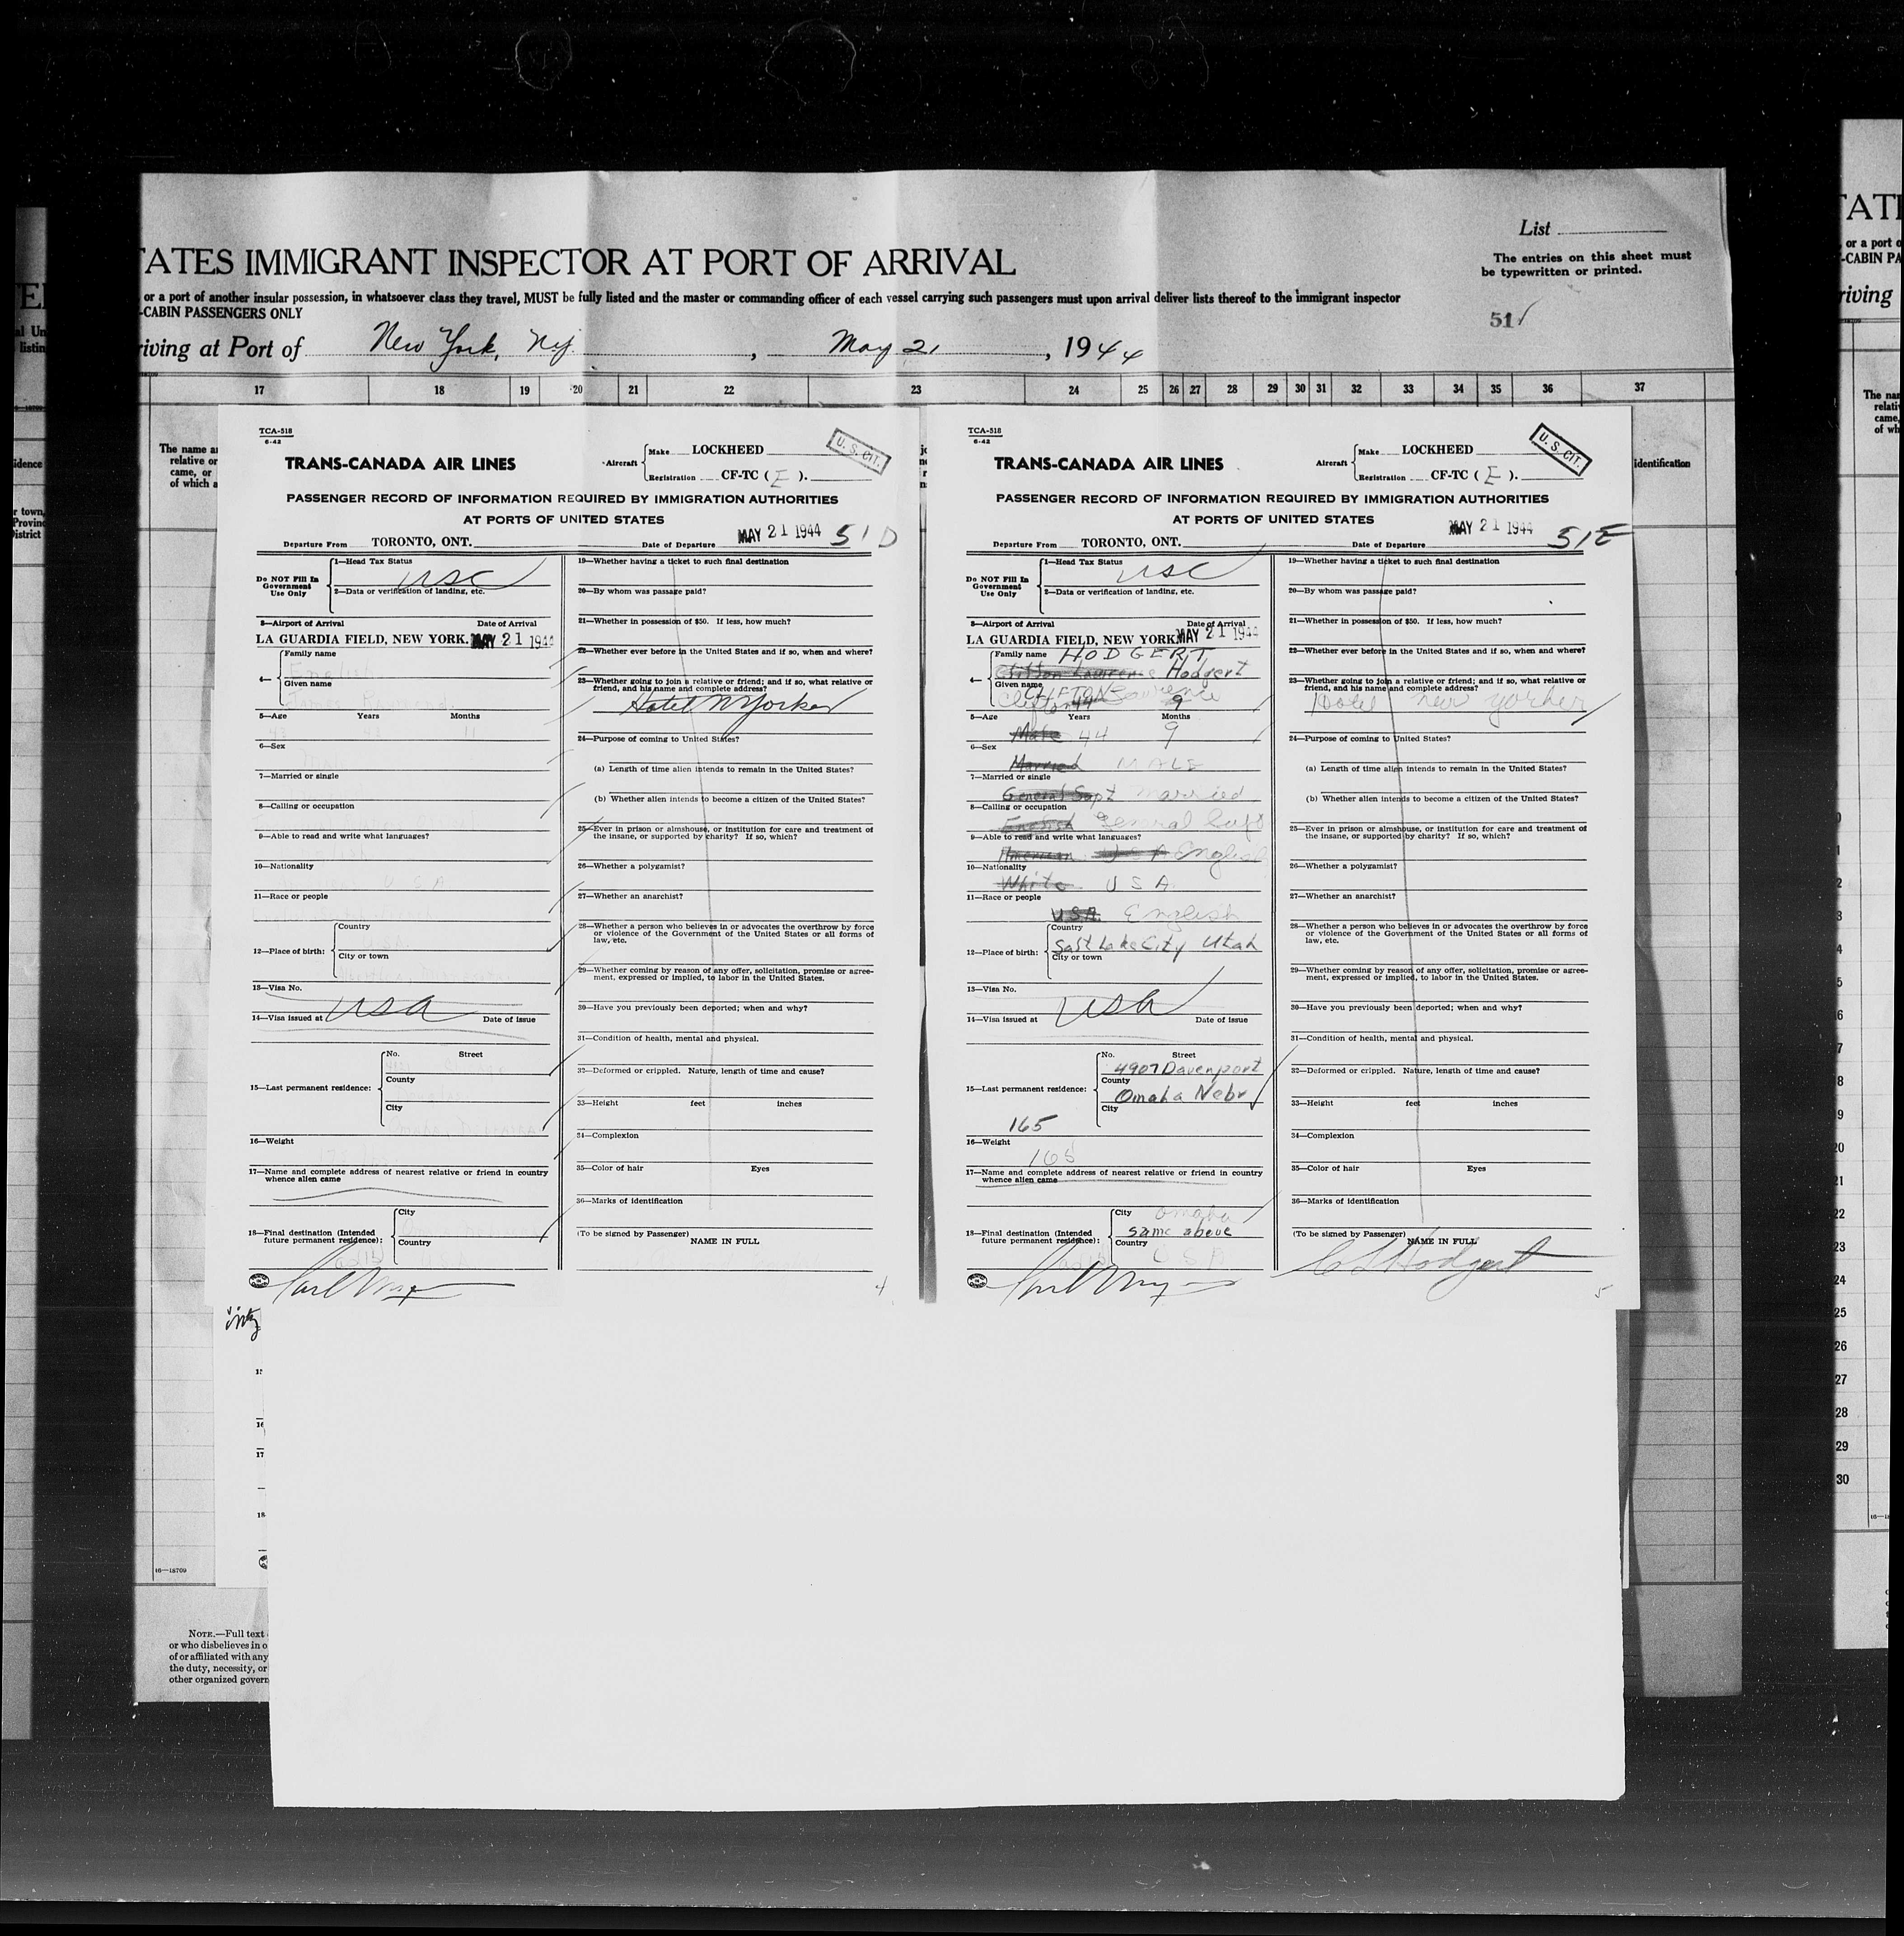 List
The entries on this sheet must
be typewritten or printed.
TATES IMMIGRANT INSPECTOR AT PORT OF ARRIVAL
or a port of another insular possession, in whatsoever class they travel, MUST be fully listed and the master or commanding officer of each vessel carrying such passengers must upon arrival deliver lists thereof to the immigrant inspector
-CABIN PASSENGERS ONLY
51
riving at Port of New York, NY. , May 21 , 1944
17 18 19 20 21 22 23 24 25 26 27 28 29 30 31 32 33 34 35 36 37
The name a
relative or
came, or
of which a
identification
TCA-518
6-42
TRANS-CANADA AIR LINES
Aircraft
Make LOCKHEED
Registration CF-TC ( E ).
U. S. CIT.
PASSENGER RECORD OF INFORMATION REQUIRED BY IMMIGRATION AUTHORITIES
AT PORTS OF UNITED STATES
Departure From TORONTO, ONT. Date of Departure MAY 21 1944 51 D
Do NOT Fill In
Government
Use Only
1—Head Tax Status
USC
2—Data or verification of landing, etc.
3—Airport of Arrival Date of Arrival
LA GUARDIA FIELD, NEW YORK. MAY 21 1944
4—
Family name
English
Given name
5—Age Years Months
6—Sex
7—Married or single
8—Calling or occupation
9—Able to read and write what languages?
10—Nationality
U S A
11—Race or people
12—Place of birth:
Country
City or town
13—Visa No.
USA
14—Visa issued at Date of issue
15—Last permanent residence:
No. Street
County
City
Omaha, Nebraska
16—Weight
17—Name and complete address of nearest relative or friend in country
whence alien came
18—Final destination (Intended
future permanent residence):
City
Country
19—Whether having a ticket to such final destination
20—By whom was passage paid?
21—Whether in possession of $50. If less, how much?
22—Whether ever before in the United States and if so, when and where?
23—Whether going to join a relative or friend; and if so, what relative or
friend, and his name and complete address?
Hotel NYorker
24—Purpose of coming to United States?
(a) Length of time alien intends to remain in the United States?
(b) Whether alien intends to become a citizen of the United States?
25—Ever in prison or almshouse, or institution for care and treatment of
the insane, or supported by charity? If so, which?
26—Whether a polygamist?
27—Whether an anarchist?
28—Whether a person who believes in or advocates the overthrow by force
or violence of the Government of the United States or all forms of
law, etc.
29—Whether coming by reason of any offer, solicitation, promise or agree-
ment, expressed or implied, to labor in the United States.
30—Have you previously been deported; when and why?
31—Condition of health, mental and physical.
32—Deformed or crippled. Nature, length of time and cause?
33—Height feet inches
34—Complexion
35—Color of hair Eyes
36—Marks of identification
(To be signed by Passenger)
NAME IN FULL
4
TCA-518
6-42
TRANS-CANADA AIR LINES
Aircraft
Make LOCKHEED
Registration CF-TC ( E ).
U. S. CIT.
PASSENGER RECORD OF INFORMATION REQUIRED BY IMMIGRATION AUTHORITIES
AT PORTS OF UNITED STATES
Departure From TORONTO, ONT. Date of Departure MAY 21 1944 51E
Do NOT Fill In
Government
Use Only
1—Head Tax Status
USC
2—Data or verification of landing, etc.
3—Airport of Arrival Date of Arrival
LA GUARDIA FIELD, NEW YORK. MAY 21 1944
4—
Family name HODGERT
Clifton Lawrence Hodgert
Given name
CLIFTON
Clifton Lawrence
44 9
5—Age Years Months
Male 44 9
6—Sex
Married MALE
7—Married or single
General Supt Married
8—Calling or occupation
English General Supt
9—Able to read and write what languages?
American U S A English
10—Nationality
White U S A.
11—Race or people
USA. English
12—Place of birth:
Country
Salt Lake City Utah
City or town
13—Visa No.
USA
14—Visa issued at Date of issue
15—Last permanent residence:
No. Street
4907 Davenport
County
Omaha Nebr
City
165
16—Weight
165
17—Name and complete address of nearest relative or friend in country
whence alien came
18—Final destination (Intended
future permanent residence):
City Omaha
same above
Country
U S A
19—Whether having a ticket to such final destination
20—By whom was passage paid?
21—Whether in possession of $50. If less, how much?
22—Whether ever before in the United States and if so, when and where?
23—Whether going to join a relative or friend; and if so, what relative or
friend, and his name and complete address?
Hotel New Yorker
24—Purpose of coming to United States?
(a) Length of time alien intends to remain in the United States?
(b) Whether alien intends to become a citizen of the United States?
25—Ever in prison or almshouse, or institution for care and treatment of
the insane, or supported by charity? If so, which?
26—Whether a polygamist?
27—Whether an anarchist?
28—Whether a person who believes in or advocates the overthrow by force
or violence of the Government of the United States or all forms of
law, etc.
29—Whether coming by reason of any offer, solicitation, promise or agree-
ment, expressed or implied, to labor in the United States.
30—Have you previously been deported; when and why?
31—Condition of health, mental and physical.
32—Deformed or crippled. Nature, length of time and cause?
33—Height feet inches
34—Complexion
35—Color of hair Eyes
36—Marks of identification
(To be signed by Passenger)
NAME IN FULL
C L Hodgert
5
16—18709
NOTE.—Full text
or who disbelieves in o
of or affiliated with any
the duty, necessity, or
other organized govern